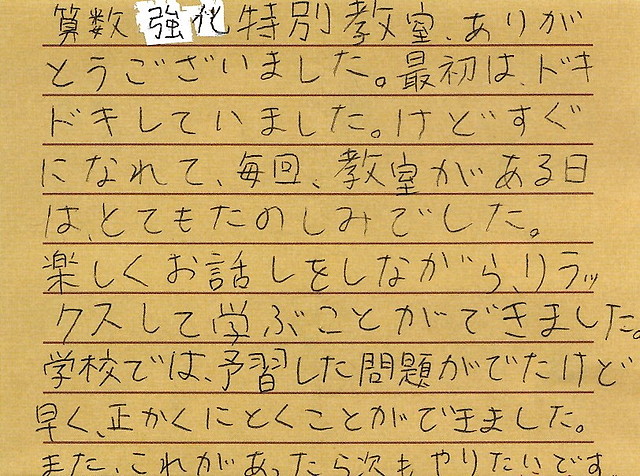 算数強化特別教室、ありが
とうございました。最初は、ドキ
ドキしていました。けどすぐ
になれて、毎回、教室がある日
は、とてもたのしみでした。
楽しくお話しをしながら、リラッ
クスして学ぶことができました。
学校では、予習した問題がでたけど
早く、正かくにとくことができました。
また、これがあったら次も、やりたいです。